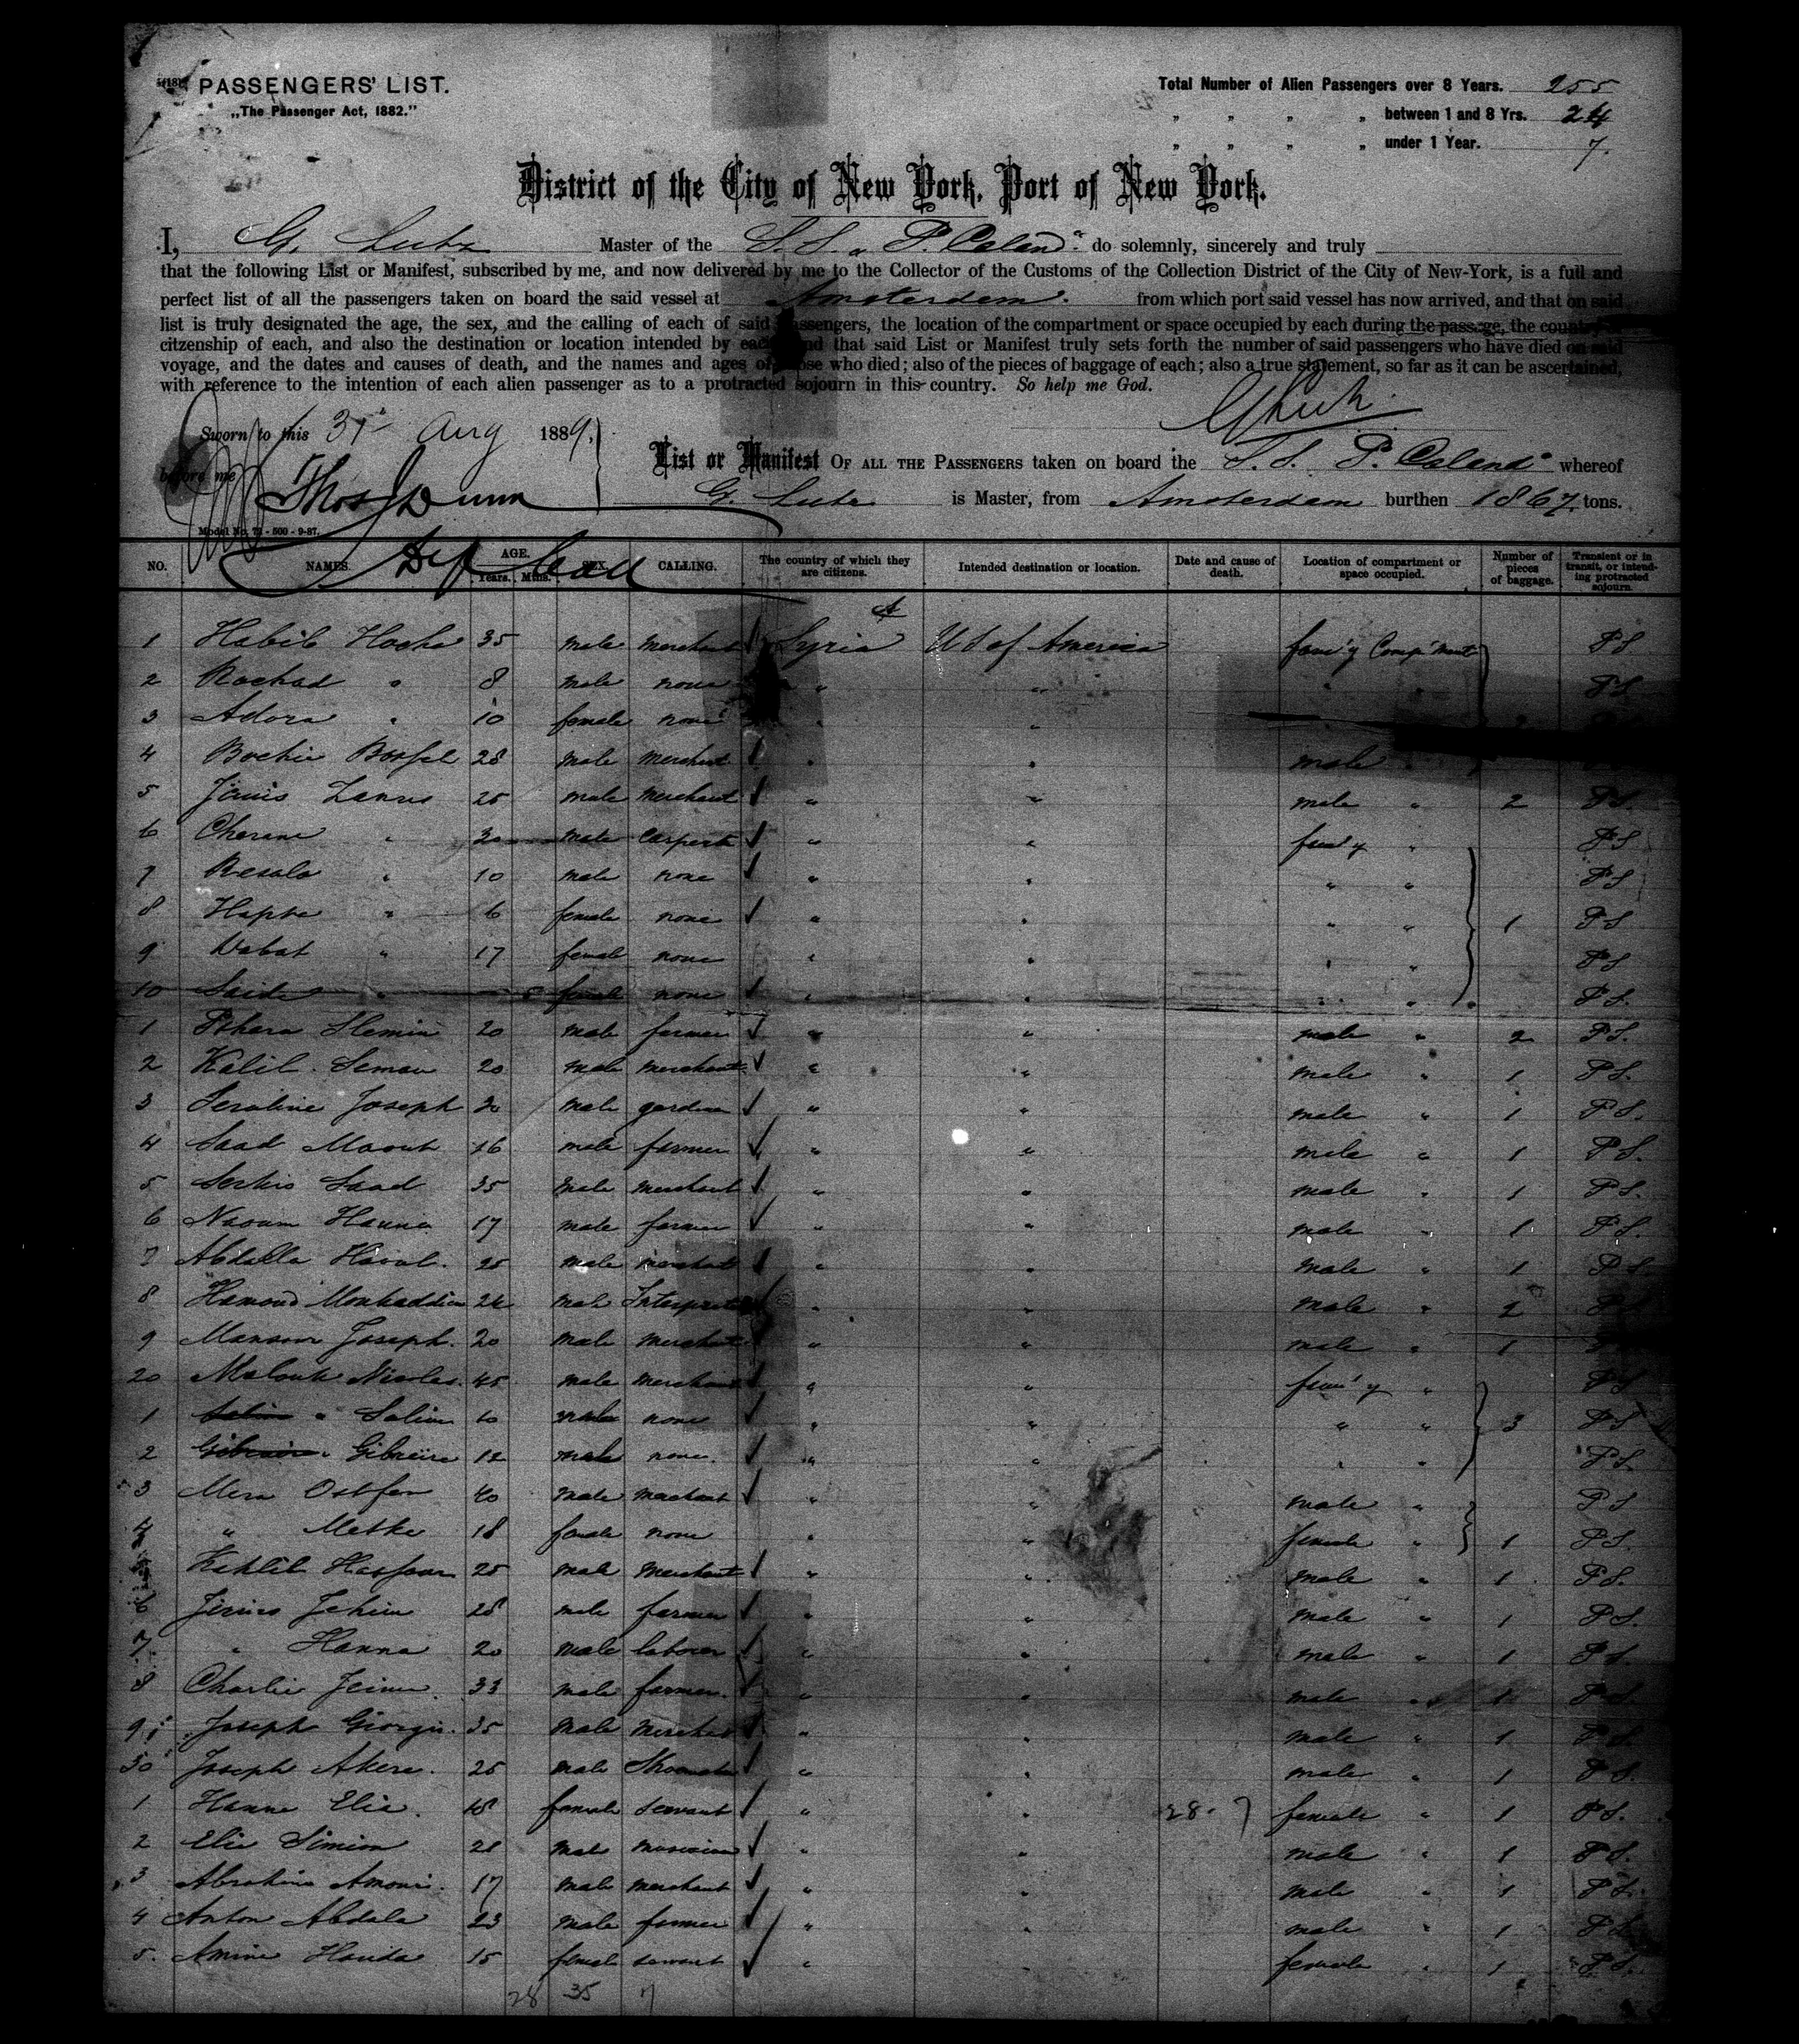 PASSENGERS' LIST.
„The Passenger Act, 1882.”
Total Number of Alien Passengers over 8 Years. 255
„ „ „ „ between 1 and 8 Yrs. 24
„ „ „ „ under 1 Year. 7.
District of the City of New York, Port of New York.
I, G. Lutz Master of the S.S. „P. Caland” do solemnly, sincerely and truly
that the following List or Manifest, subscribed by me, and now delivered by me to the Collector of the Customs of the Collection District of the City of New-York, is a full and
perfect list of all the passengers taken on board the said vessel at Amsterdam. from which port said vessel has now arrived, and that on said
list is truly designated the age, the sex, and the calling of each of said passengers, the location of the compartment or space occupied by each during the passage, the country of
citzenship of each, and also the destination or location intended by each and that said List or Manifest truly sets forth the number of said passengers who have died on said
voyage, and the dates and causes of death, and the names and ages of those who died; also of the pieces of baggage of each; also a true statement, so far as it can be ascertained,
with reference to the intention of each alien passenger as to a protracted sojourn in this country. So help me God.
Sworn to this 31st Aug 1889,
before me
List or Manifest OF ALL THE PASSENGERS taken on board the S.S. P. Caland whereof
Thos J Dunn
G. Lutz is Master, from Amsterdam burthen 1867 tons.
Model No. 72 - 500 - 9-87.
Dep Coll
NO. NAMES. AGE. Years. Mths. SEX. CALLING. The country of which they are citizens. Intended destination or location. Date and cause of death. Location of compartment or space occupied. Number of pieces of baggage. Transient or in transit, or intending protracted sojourn.
1 Habib 35 male merchant Syria US of America fam'y Comp'ment PS
2 Rachad " 8 male none " " " PS
3 Adora " 10 female none " "
4 28 male merchant " " male
5 25 male merchant " " male " 2 PS
6 " 30 male carpent " " fam'y " PS
7 Resala " 10 male none " " " " PS
8 " 6 female none " " " " 1 PS
9 " 17 female none " " " " PS
10 Saide " female none " " " " PS.
1 20 male farmer " " male " 2 PS.
2 Kalil Seman 20 male merchant " " male " 1 PS.
3 Joseph 20 male gardner " " male " 1 PS.
4 Saad 16 male farmer " " male " 1 PS.
5 Serkis Saad 35 male merchant " " male " 1 PS.
6 Naoum Hanna 17 male farmer " " male " 1 PS.
7 Abdalla 25 male merchant " " male " 1 PS
8 24 male Interpreter " " male " 2 PS
9 Mansour Joseph. 20 male merchant " " male " 1
20 Nicolas. 45 male merchant " " fam'y " PS
1 " Salim 10 male none " " " " 3 PS
2 " 12 male none. " " " " PS
3 40 male merchant " " male " PS
4 " 18 female none " " female " 1 PS.
25 male merchant " " male " 1 PS.
6 28 male farmer " " male " 1 PS.
7 " Hanna 20 male laborer " " male " 1 PS
8 Charlie 33 male farmer. " " male " 1 PS
9 Joseph 35 male merchant " " male " 1 PS
30 Joseph 25 male " " male " 1 PS.
1 Hanne Elia. 18 female servant " " 28. 7 female " 1 PS.
2 Elie Simion male musician " " male " 1 PS.
3 Abrahim 17 male merchant " " male " 1 PS.
4 Anton Abdala 23 male farmer " " male " 1 PS
5. Amine 15 female servant " " female " 1 PS.
28 35 7